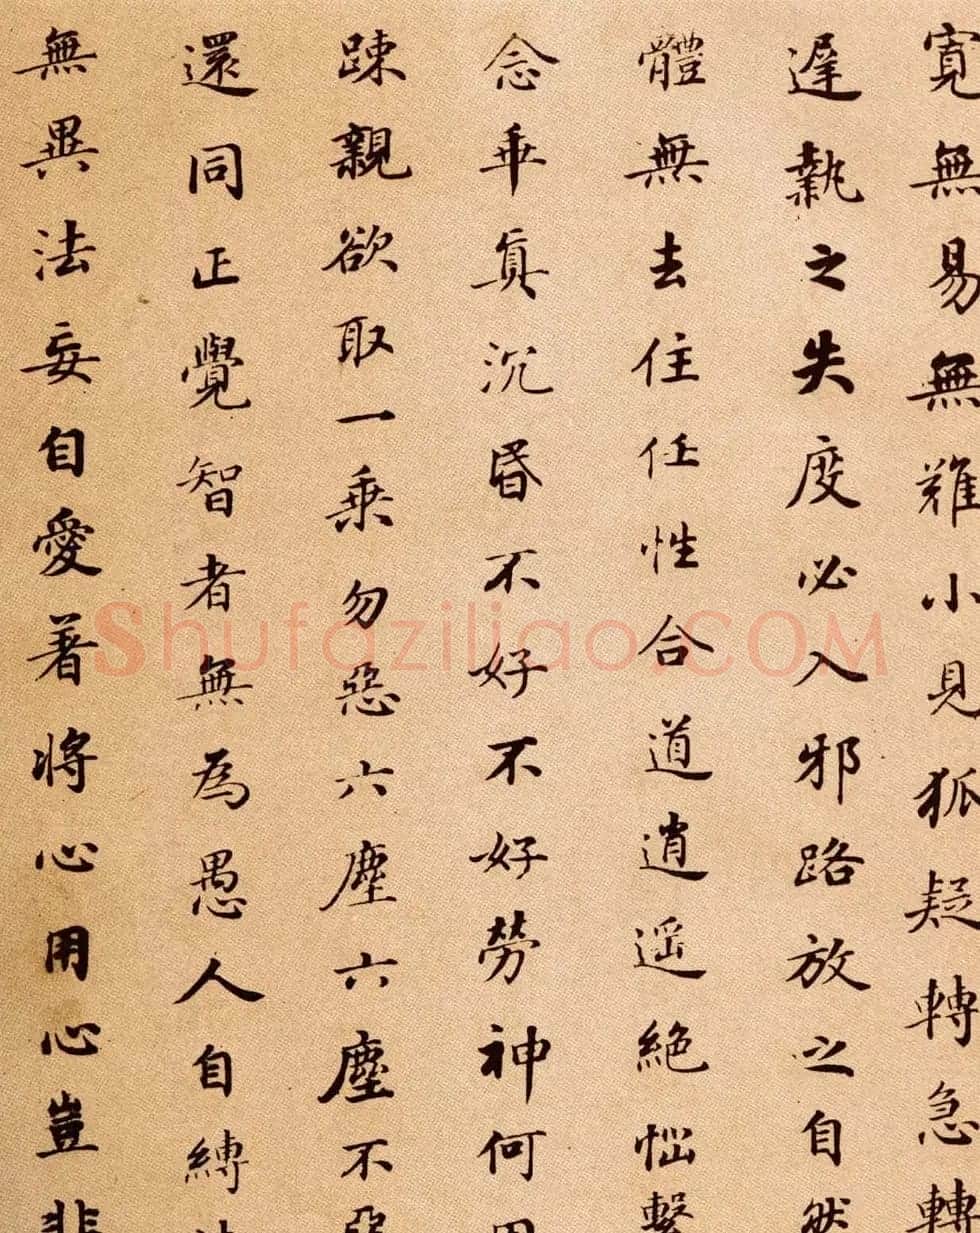 寬無易無難小見狐疑轉急轉
遲執之失度必入邪路放之自然
體無去住任性合道逍遥絕惱繫
念乖真沉昏不好不好勞神何
踈親欲取一乘勿惡六塵六塵不惡
還同正覺智者無為愚人自縛
無異法妄自愛著將心用心豈非
Shufaziliao.COM